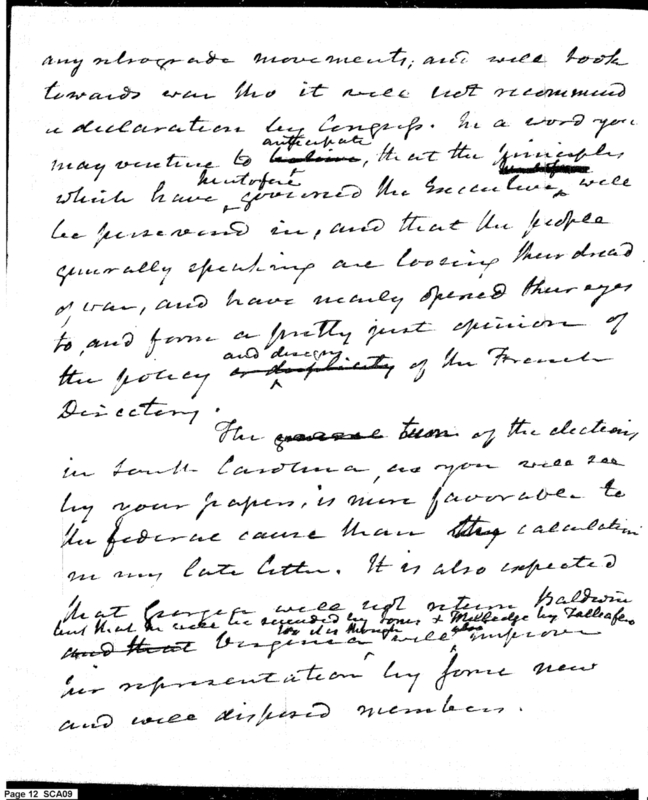 any retrograde movements; and will look
towards war tho it will not recommend
a declaration by Congress. In a word you
may venture to believe anticipate, that the principles
which have heretofore governed the Executive, will
be persevered in, and that the people
generally speaking are loosing their dread
of war, and have nearly opened their eyes
to, and form a pretty just opinion of
the policy or duplicity and designs of the French
Directory.
The general turn of the elections
in South Carolina, as you will see
by your papers, is more favorable to
the federal cause than the calculation
in my late letter. It is also expected
that Georgia will not return Baldwin
but that he will be succeeded by Jones & Milledge by Taliaferro
and that Virginia too it is though will also improve
her representation by some new
and well disposed members.
Page 12 SCA09